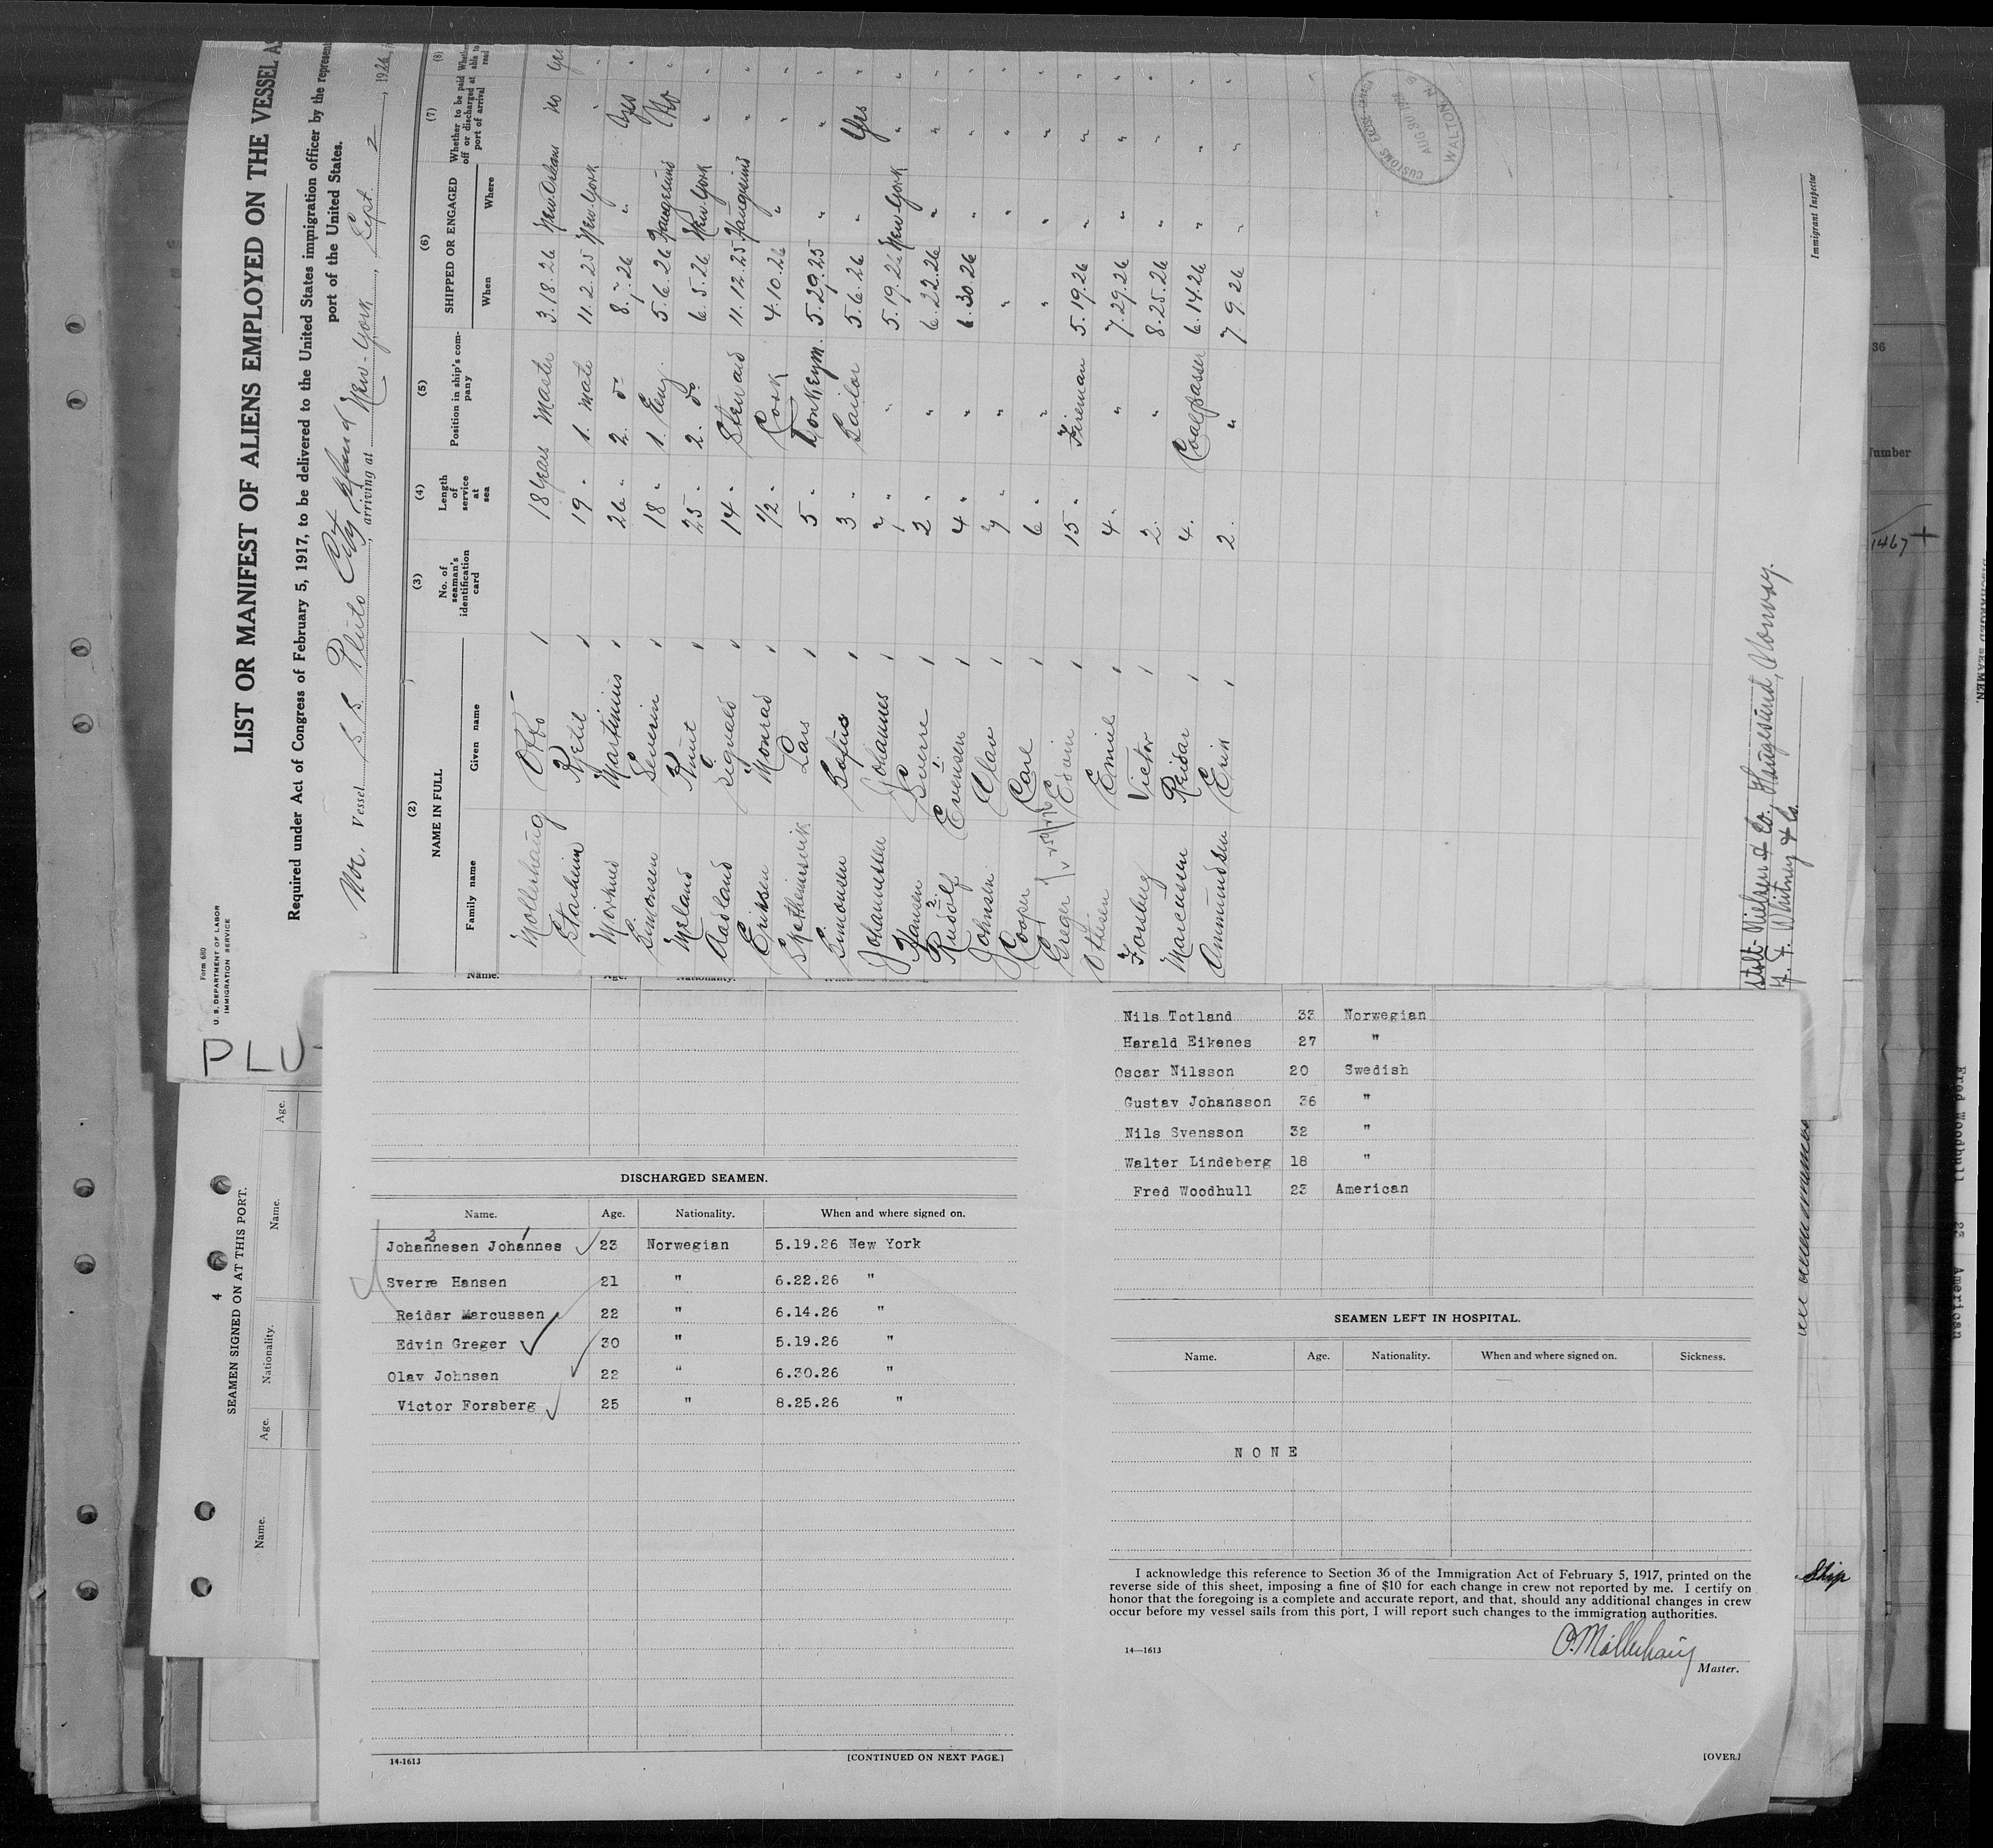 Form 680
U. S. DEPARTMENT OF LABOR
IMMIGRATION SERVICE
LIST OR MANIFEST OF ALIENS EMPLOYED ON THE VESSEL A
Required under Act of Congress of February 5, 1917, to be delivered to the United States immigration officer by the represent
port of the United States.
Nor. Vessel S.S. Pluto, arriving at New-York, Sept. 2, 1926
(2) (3) (4) (5) (6) (7) (8)
NAME IN FULL
Family name Given name
No. of seaman's identification card
Length of service at sea
Position in ship's company
SHIPPED OR ENGAGED
When Where
Whether to be paid off or discharged at port of arrival
Whether able to read
Mollerhaug Otto 18 years Master 3.18.26 New-Orleans no
Staheim Kjetil 19 " 1. mate 11.2.25 New-York "
Martinius 26 " 2. do 8.7.26 " Yes
Simonsen Severin 18 " 1. Eng. 5.6.26 Haugesund No
Meland Knut 25 " 2. do 6.5.26 New York "
Aadland Sigvald 14 " Steward 11.12.25 Haugesund "
Eriksen Monrad 1/2 " Cook 4.10.26 " "
Lars 5 " Donkeym. 5.29.25 " "
Simonsen Rafus 3 " Sailor 5.6.26 " Yes
Johannessen Johannes 1 " " 5.19.26 New-York "
Hansen Sverre 2 " " 6.22.26 " "
Rudolf Evensen 4 " " 6.30.26 " "
Johnsen Olav " " " " "
Cooper Carl 6 " " " " "
Greger Edvin 15 " Fireman 5.19.26 " "
Ottesen Emiel 4 " " 7.29.26 " "
Forsberg Victor 2. " 8.25.26 " "
Marcussen Reidar 4. Coalpasser 6.14.26 " "
Ammundsen Erik 2. " 7.9.26 " "
CUSTOMS
AUG 30 1926
WALTON N
Immigrant Inspector
Stolt-Nielsen & Co. Haugesund, Norway.
Whitney & Co.
PLU
Name. Age. Nationality.
DISCHARGED SEAMEN.
Name. Age. Nationality. When and where signed on.
Johannesen Johannes 23 Norwegian 5.19.26 New York
Sverre Hansen 21 " 6.22.26 "
Reidar Marcussen 22 " 6.14.26 "
Edvin Greger 30 " 5.19.26 "
Olav Johnsen 22 " 6.30.26 "
Victor Forsberg 25 " 8.25.26 "
14-1613
[CONTINUED ON NEXT PAGE.]
Nils Totland 33 Norwegian
Harald Eikenes 27 "
Oscar Nilsson 20 Swedish
Gustav Johansson 36 "
Nils Svensson 32 "
Walter Lindeberg 18 "
Fred Woodhull 23 American
SEAMEN LEFT IN HOSPITAL.
Name. Age. Nationality. When and where signed on. Sickness.
NONE
I acknowledge this reference to Section 36 of the Immigration Act of February 5, 1917, printed on the
reverse side of this sheet, imposing a fine of $10 for each change in crew not reported by me. I certify on
honor that the foregoing is a complete and accurate report, and that, should any additional changes in crew
occur before my vessel sails from this port, I will report such changes to the immigration authorities.
O. Mollerhaug
Master.
14—1613
[OVER]
4
SEAMEN SIGNED ON AT THIS PORT.
Name. Age. Nationality. Name. Age.
36
Number
1467
Ship
Fred Woodhull 23 American